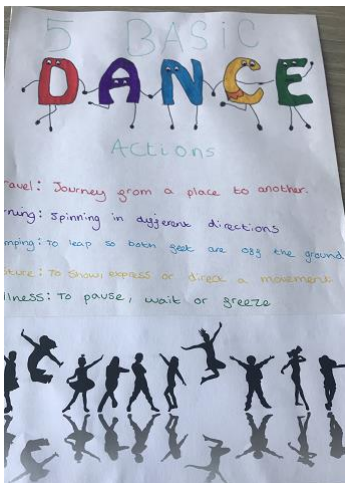 5 BASIC
DANCE
Actions
ravel: Journey from a place to another.
rning: Spinning in different directions
mping: To leap so both feet are off the ground
ture: To show, express or direct a movement
llness: To pause, wait or freeze